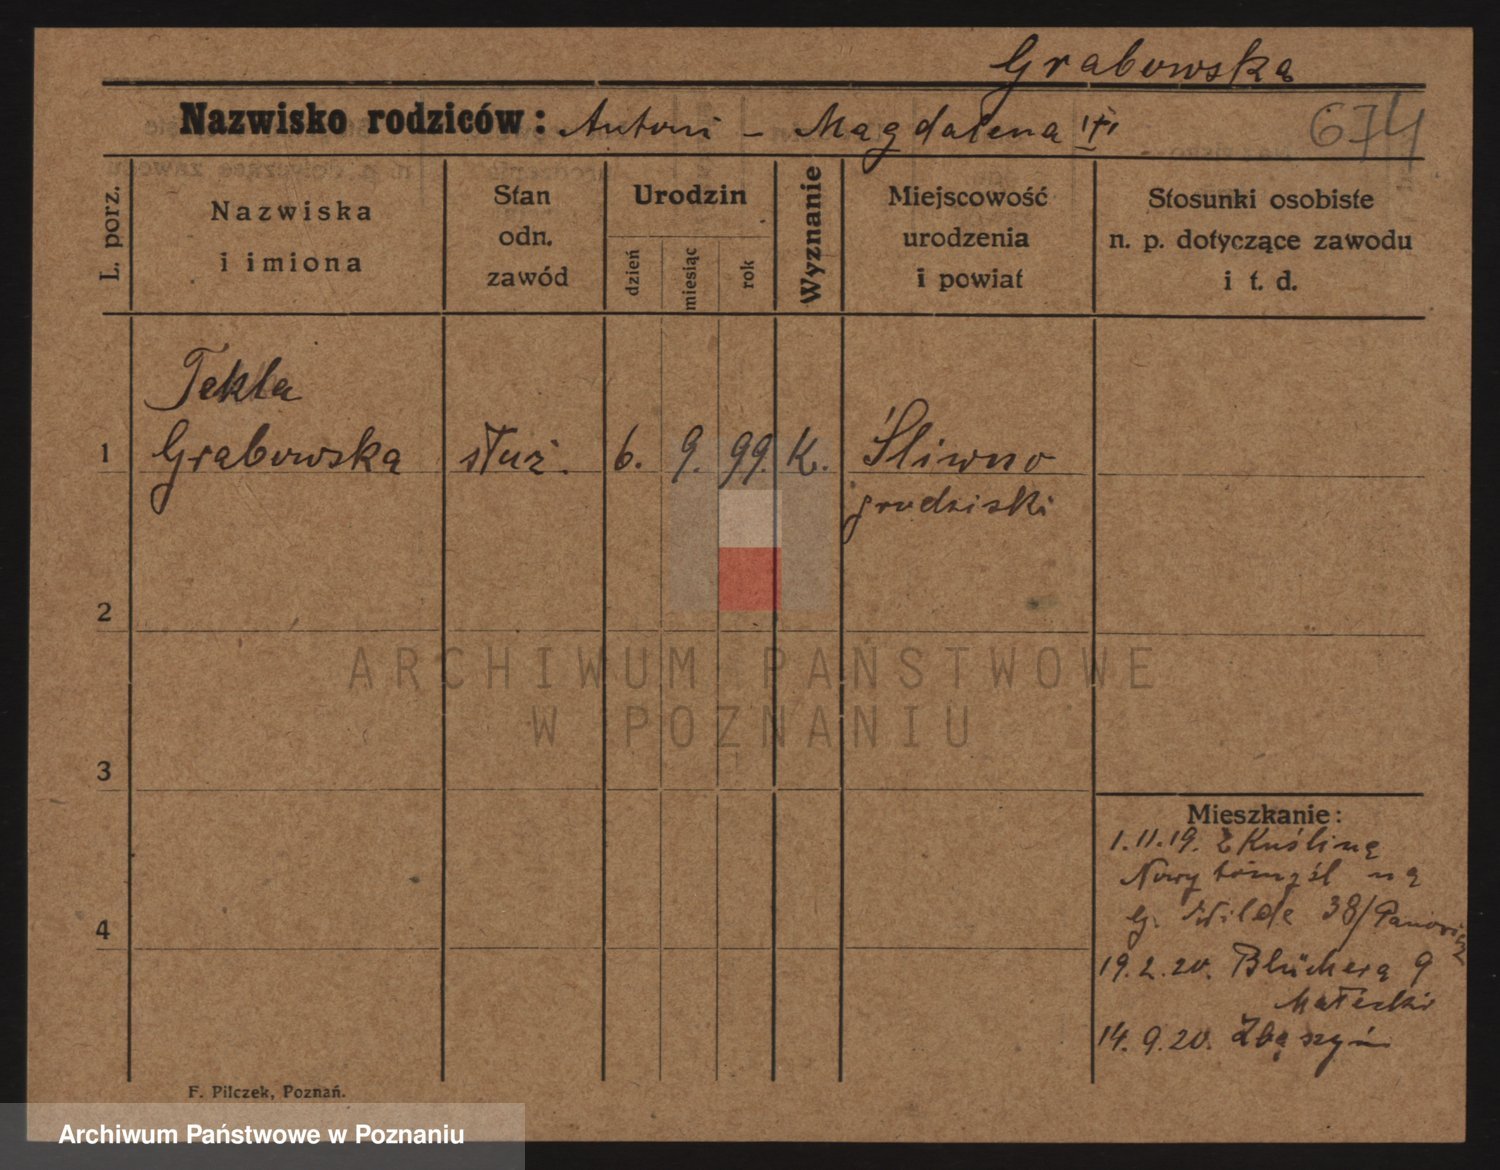 Grabowska
Nazwisko rodziców: Antoni - Magdalena
674
L. porz.
Nazwiska
i imiona
Stan
odn.
zawód
Urodzin
dzień
miesiąc
rok
Wyznanie
Miejscowość
urodzenia
i powiat
Stosunki osobiste
n. p. dotyczące zawodu
i t. d.
Tekla
1 Grabowska służ. 6. 9. 99. K. Śliwno
grodziski
2
ARCHIWUM PAŃSTWOWE
W POZNANIU
3
Mieszkanie:
1.11.19. z Kuślina
Nowytomyśl na
G. Wilde 38/
4
19.2.20. Blüchera 9
Małecki
14.9.20. Zbąszyń
F. Pilczek, Poznań.
Archiwum Państwowe w Poznaniu